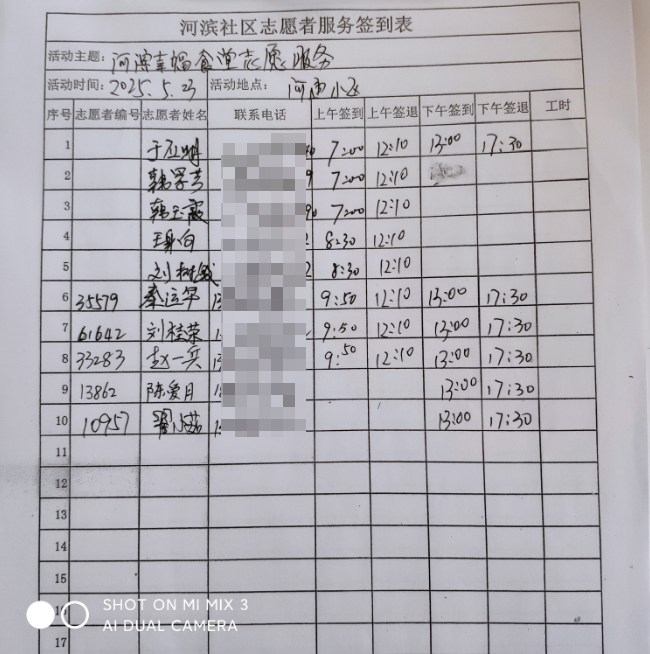 河滨社区志愿者服务签到表
活动主题: 河滨幸福食堂志愿服务
活动时间: 2025.5.23 活动地点: 河滨小区
序号 志愿者编号 志愿者姓名 联系电话 上午签到 上午签退 下午签到 下午签退 工时
1 7:00 12:10 13:00 17:30
2 7:00 12:10
3 韩玉霞 7:00 12:10
4 8:30 12:10
5 8:30 12:10
6 35579 秦运华 9:50 12:10 13:00 17:30
7 61642 刘桂荣 9:50 12:10 13:00 17:30
8 33283 赵一兵 9:50 12:10 13:00 17:30
9 13862 陈爱月 13:00 17:30
10 10957 13:00 17:30
11
12
13
14
15
16
17
SHOT ON MI MIX 3
AI DUAL CAMERA